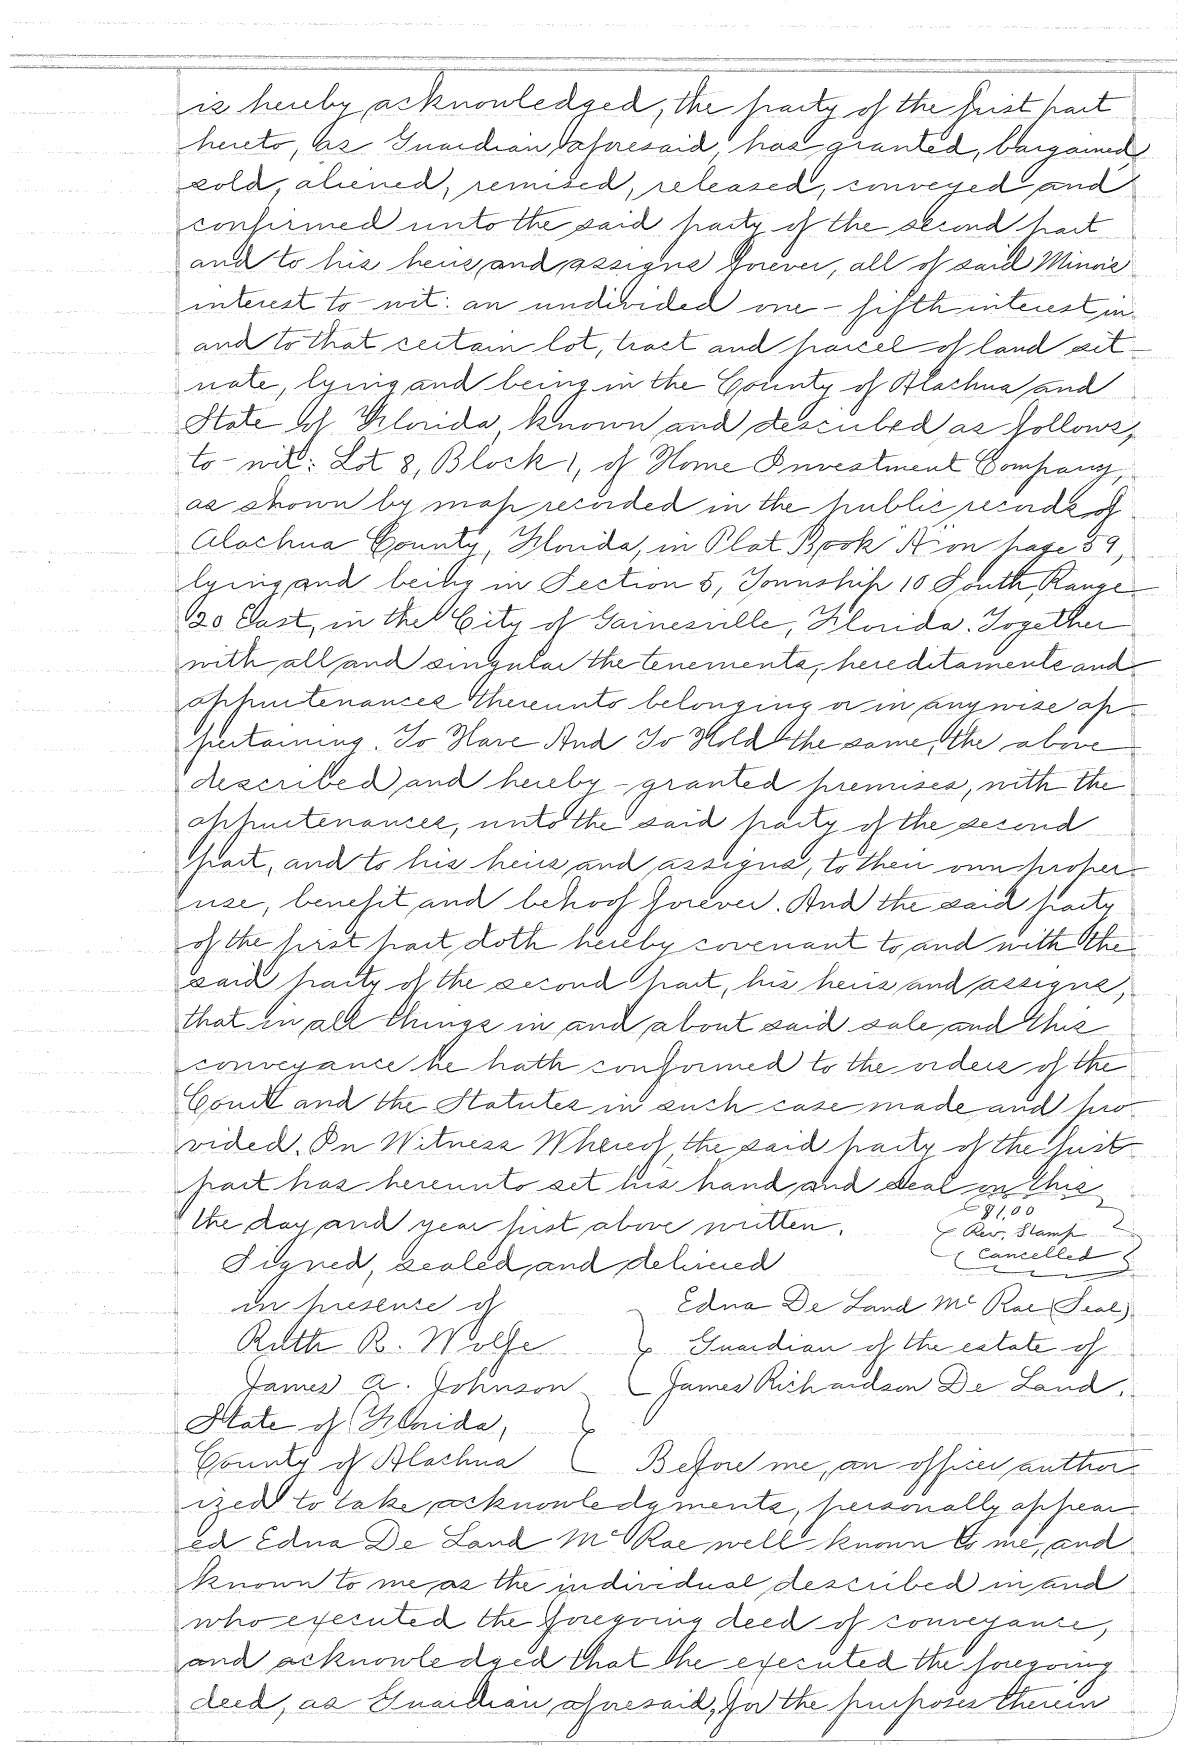 is hereby acknowledged, the party of the first part
hereto, as Guardian aforesaid, has granted, bargained,
sold, aliened, remised, released, conveyed and
confirmed unto the said party of the second part
and to his heirs and assigns forever, all of said Minors
interest to-wit: an undivided one-fifth interest in
and to that certain lot, tract and parcel of land sit-
uate, lying and being in the County of Alachua and
State of Florida, known and described as follows,
to-wit: Lot 8, Block 1, of Home Investment Company,
as shown by map recorded in the public records of
Alachua County, Florida, in Plat Book "A" on page 59,
lying and being in Section 5, Township 10 South, Range
20 East, in the City of Gainesville, Florida. Together
with all and singular the tenements, hereditaments and
appurtenances thereunto belonging or in anywise ap-
pertaining. To Have And To Hold the same, the above
described and hereby-granted premises, with the
appurtenances, unto the said party of the second
part, and to his heirs and assigns, to their own proper
use, benefit and behoof forever. And the said party
of the first part doth hereby covenant to and with the
said party of the second part, his heirs and assigns,
that in all things in and about said sale and this
conveyance he hath conformed to the orders of the
Court and the Statutes in such case made and pro-
vided. In Witness Whereof, the said party of the first
part has hereunto set his hand and seal on this
$1.00
the day and year first above written.
Rev. Stamp
Cancelled
Signed, sealed and delivered
in presence of
Edna De Land McRae (Seal)
Ruth R. Wolfe
Guardian of the estate of
James A. Johnson
James Richardson De Land.
State of Florida,
County of Alachua Before me, an officer author-
ized to take acknowledgments, personally appear-
ed Edna De Land McRae well known to me, and
known to me as the individual described in and
who executed the foregoing deed of conveyance,
and acknowledged that he executed the foregoing
deed, as Guardian aforesaid, for the purposes therein